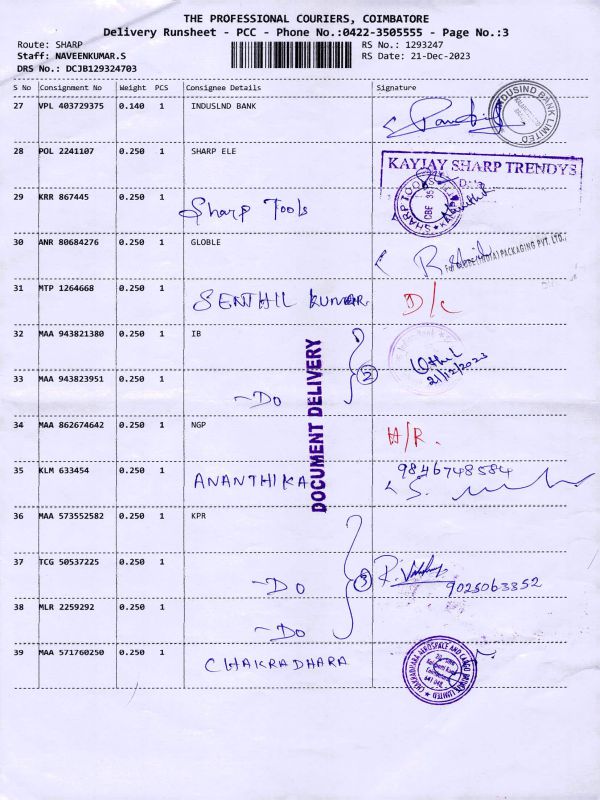 THE PROFESSIONAL COURIERS, COIMBATORE
Delivery Runsheet - PCC - Phone No.:0422-3505555 - Page No.:3
Route: SHARP
RS No.: 1293247
Staff: NAVEENKUMAR.S
RS Date: 21-Dec-2023
DRS No.: DCJB129324703
S No Consignment No Weight PCS Consignee Details Signature
27 VPL 403729375 0.140 1 INDUSLND BANK
INDUSIND BANK LIMITED
28 POL 2241107 0.250 1 SHARP ELE
KAYJAY SHARP TRENDYS
29 KRR 867445 0.250 1 Sharp Tools
SHARP TOOLS
30 ANR 80684276 0.250 1 GLOBLE
(INDIA) PACKAGING PVT. LTD.,
31 MTP 1264668 0.250 1 SENTHIL KUMAR D/c
32 MAA 943821380 0.250 1 IB
33 MAA 943823951 0.250 1 -Do 2
21/12/2023
DOCUMENT DELIVERY
34 MAA 862674642 0.250 1 NGP H/R.
35 KLM 633454 0.250 1 ANANTHIKA 9846748584
36 MAA 573552582 0.250 1 KPR
37 TCG 50537225 0.250 1 -Do 3 9025063352
38 MLR 2259292 0.250 1 -Do
39 MAA 571760250 0.250 1 CHAKRADHARA
CHAKRADHARA AEROSPACE AND CARGO PRIVATE LIMITED